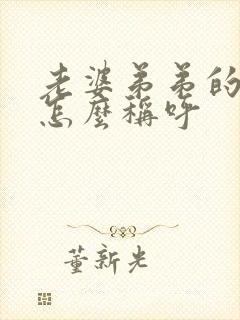 老婆弟弟的
怎麼稱呼
董新光